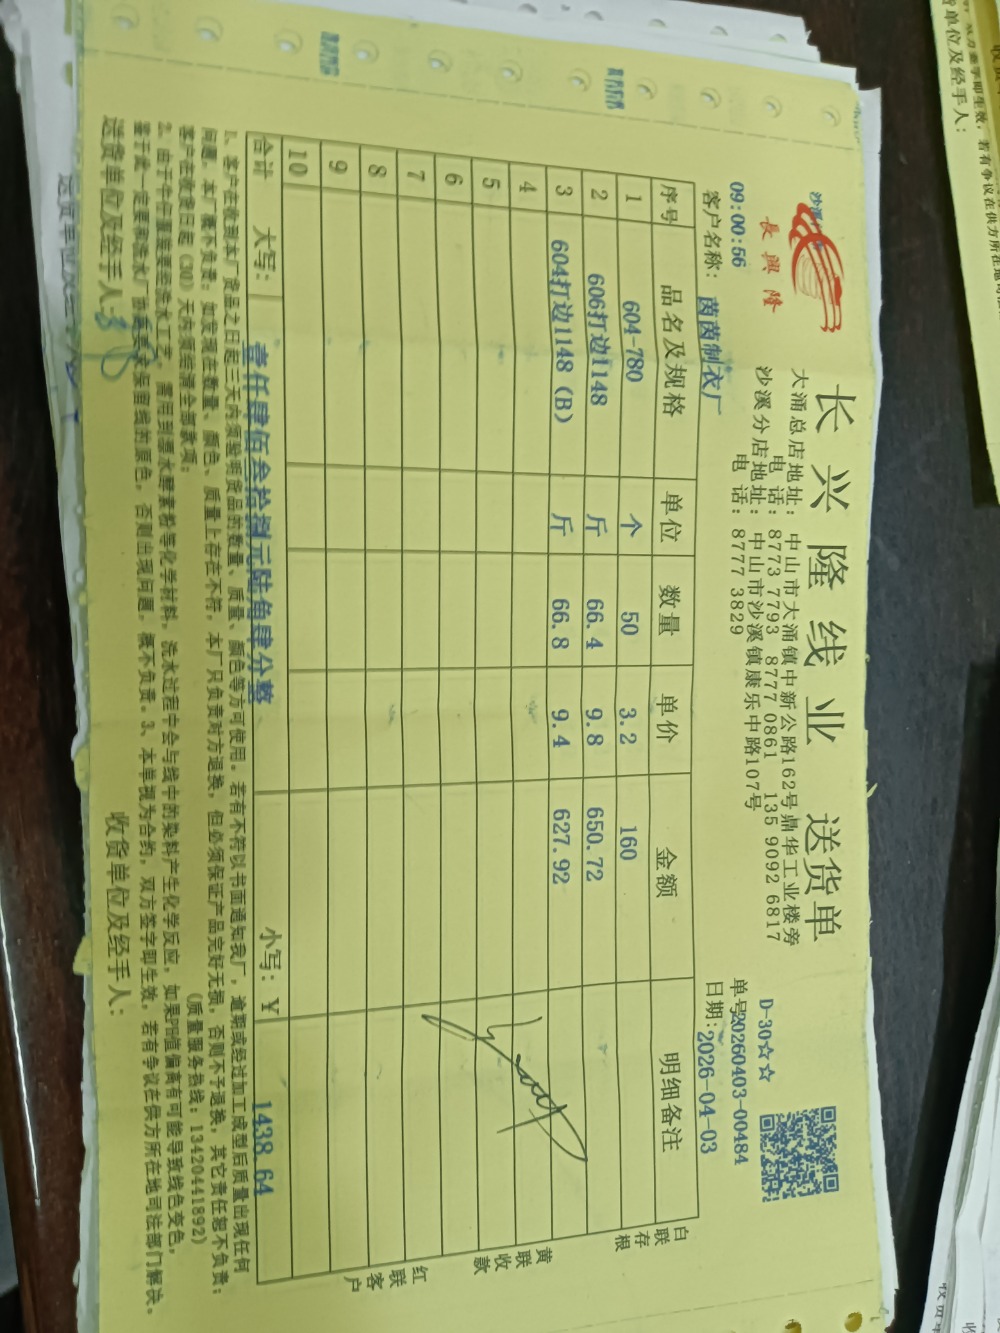 长兴隆线业 送货单
沙溪
長興隆
大涌总店地址：中山市大涌镇中新公路162号鼎华工业楼旁
电 话：8773 7793 8777 0861 135 9092 6817
沙溪分店地址：中山市沙溪镇康乐中路107号
电 话：8777 3829
D-30☆☆
09:00:56
单号20260403-00484
客户名称：茵茵制衣厂
日期：2026-04-03
序号 品名及规格 单位 数量 单价 金额 明细备注
1 604-780 个 50 3.2 160
2 606打边1148 斤 66.4 9.8 650.72
3 604打边1148（B） 斤 66.8 9.4 627.92
4
5
6
7
8
9
10
合计 大写：壹仟肆佰叁拾捌元陆角肆分整 小写：¥ 1438.64
白联存根
黄联收款
红联客户
1、客户在收到本厂货品之日起三天内须验明货品的数量、质量、颜色等方可使用。若有不符以书面通知我厂，逾期或经过加工成型后质量出现任何
问题，本厂概不负责；如发现在数量、颜色、质量上存在不符，本厂只负责对方退换，但必须保证产品完好无损，否则不予退换，其它责任恕不负责；
客户在收货日起（30）天内须结清全部款项； （质量服务热线：13420441892）
2、由于牛仔服装要经洗水工艺，需用到漂水酵素粉等化学材料，洗水过程中会与线中的染料产生化学反应，如果PH值偏离有可能导致线色变色，
鉴于此一定要和洗水厂协商要求保留线的原色，否则出现问题，概不负责。3、本单视为合约，双方签字即生效，若有争议在供方所在地司法部门解决。
送货单位及经手人：
收货单位及经手人：
单位及经手人：